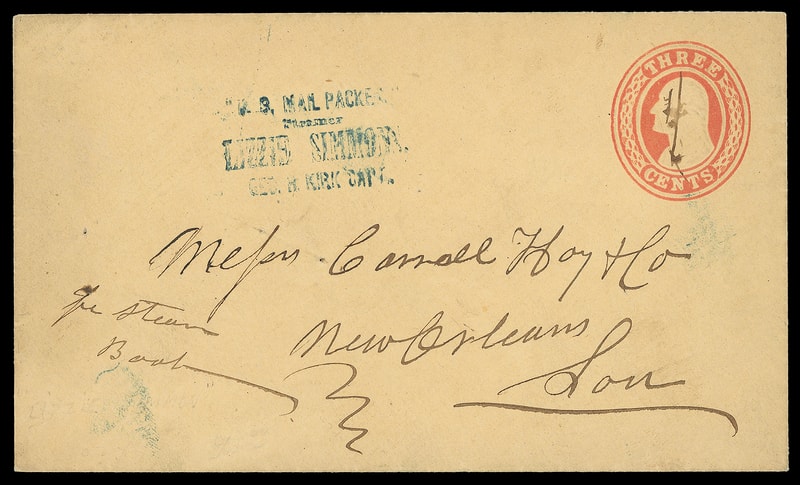 U.S. MAIL PACKET
Steamer
LIZZIE SIMMONS.
GEO. H. KIRK CAPT.
THREE
CENTS
Messrs Carroll Hoy & Co
pr steam
Boat
New Orleans
Lou